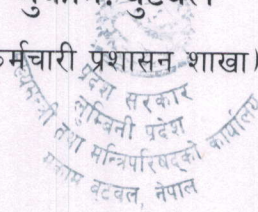 कर्मचारी प्रशासन शाखा)
प्रदेश सरकार
लुम्बिनी प्रदेश
तथा मन्त्रिपरिषद्को कार्यालय
बुटवल, नेपाल